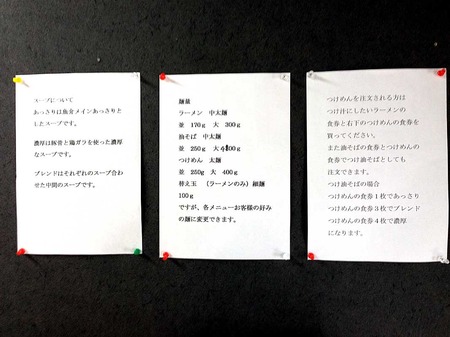 スープについて
あっさりは魚介メインあっさりと
したスープです。
濃厚は豚骨と鶏ガラを使った濃厚
なスープです。
ブレンドはそれぞれのスープ合わ
せた中間のスープです。
麺量
ラーメン 中太麺
並 170g 大 300g
油そば 中太麺
並 250g 大 400g
つけめん 太麺
並 250g 大 400g
替え玉 (ラーメンのみ) 細麺
100g
ですが、各メニューお客様の好み
の麺に変更できます。
つけめんを注文される方は
つけ汁にしたいラーメンの
食券と右下のつけめんの食券を
買ってください。
また油そばの食券とつけめんの
食券でつけ油そばとしても
注文できます。
つけ油そばの場合
つけめんの食券1枚であっさり
つけめんの食券3枚でブレンド
つけめんの食券4枚で濃厚
になります。